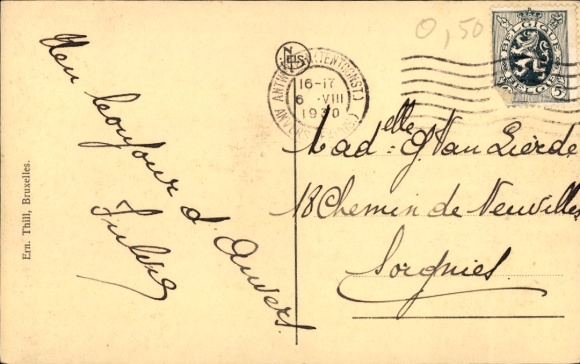 Un bonjour d'Anvers.
0,50
BELGIQUE
BELGIË
5c
16-17
6 VIII
1930
Mad elle G. Van Lierde
18 Chemin de Neuvilles
Soignies
Ern. Thill, Bruxelles.